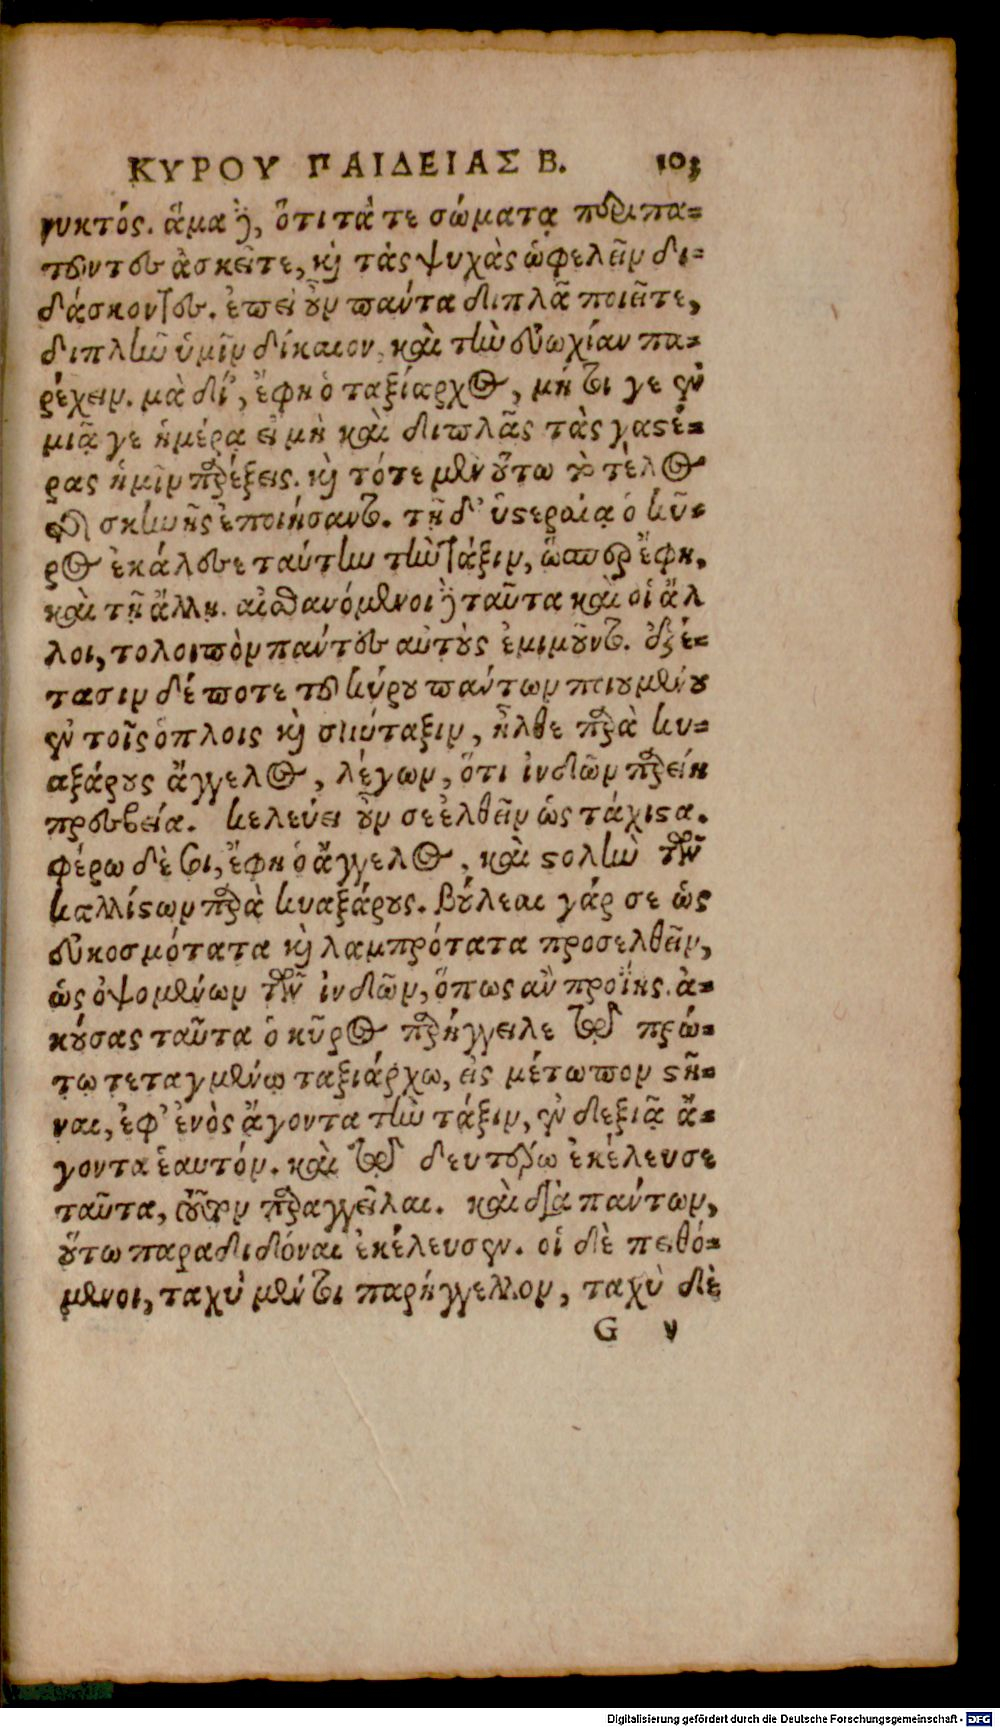 ΚΥΡΟΥ ΠΑΙΔΕΙΑΣ Β. 103
νυκτός. ἅμα ἢ, ὅτι τά τε σώματα περιπα-
τοῦντες ἀσκεῖτε, καὶ τὰς ψυχὰς ὠφελεῖν δι-
δάσκοντες. ἐπεὶ οὖν πάντα διπλᾶ ποιεῖτε,
διπλῆν ὑμῖν δίκαιον καὶ τὴν εὐωχίαν πα-
ρέχειν. μὰ δί', ἔφη ὁ ταξίαρχος, μή τοι γε ἐν
μιᾷ γε ἡμέρᾳ εἰ μὴ καὶ διπλᾶς τὰς γαστέ-
ρας ἡμῖν παρέξεις. καὶ τότε μὲν οὕτω τὸ τέλος
τῆς σκηνῆς ἐποιήσαντο. τῇ δ' ὑστεραίᾳ ὁ κῦ-
ρος ἐκάλεσε ταύτην τὴν τάξιν, ὥσπερ ἔφη,
καὶ τῇ ἄλλῃ. αἰσθανόμενοι δὲ ταῦτα καὶ οἱ ἄλ
λοι, τολοιπὸν πάντες αὐτοὺς ἐμιμοῦντο. ἐξέ-
τασιν δέ ποτε τοῦ κύρου πάντων ποιουμένου
ἐν τοῖς ὅπλοις καὶ σύνταξιν, ἦλθε παρὰ κυ-
αξάρους ἄγγελος, λέγων, ὅτι ἰνδῶν παρείη
πρεσβεία. κελεύει οὖν σε ἐλθεῖν ὡς τάχιστα.
φέρω δέ σοι, ἔφη ὁ ἄγγελος, καὶ στολὴν τῶν
καλλίστων παρὰ κυαξάρους. βούλεται γάρ σε ὡς
εὐκοσμότατα καὶ λαμπρότατα προσελθεῖν,
ὡς ὀψομένων τῶν ἰνδῶν, ὅπως ἂν προΐῃς. ἀ-
κούσας ταῦτα ὁ κῦρος παρήγγειλε τῷ πρώ-
τῳ τεταγμένῳ ταξιάρχῳ, εἰς μέτωπον στῆ-
ναι, ἐφ' ἑνὸς ἄγοντα τὴν τάξιν, ἐν δεξιᾷ ἄ-
γοντα ἑαυτόν. καὶ τῷ δευτέρῳ ἐκέλευσε
ταῦτα, παραγγεῖλαι. καὶ διὰ πάντων,
οὕτω παραδιδόναι ἐκέλευσεν. οἱ δὲ πειθό-
μενοι, ταχὺ μέν τοι παρήγγελλον, ταχὺ δὲ
G v
Digitalisierung gefördert durch die Deutsche Forschungsgemeinschaft - DFG